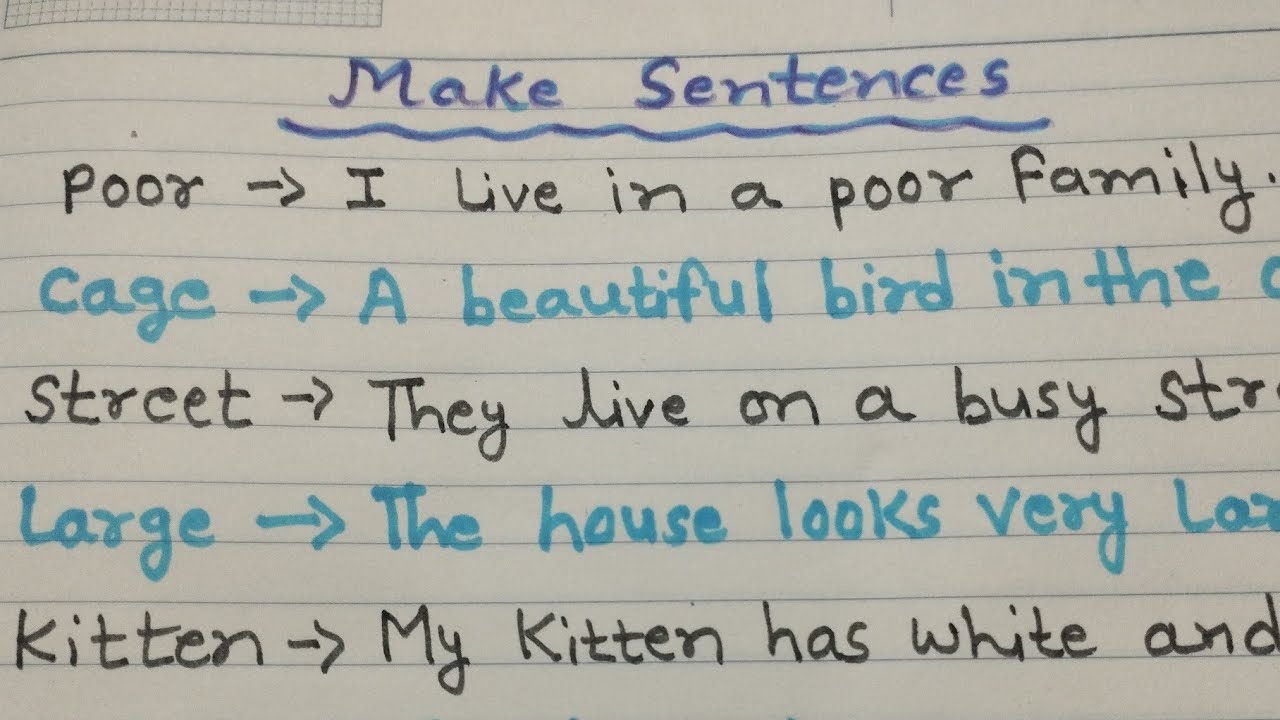 Make Sentences
Poor → I Live in a poor Family.
Cage → A beautiful bird in the
Street → They live on a busy
Large → The house looks very
Kitten → My Kitten has white and